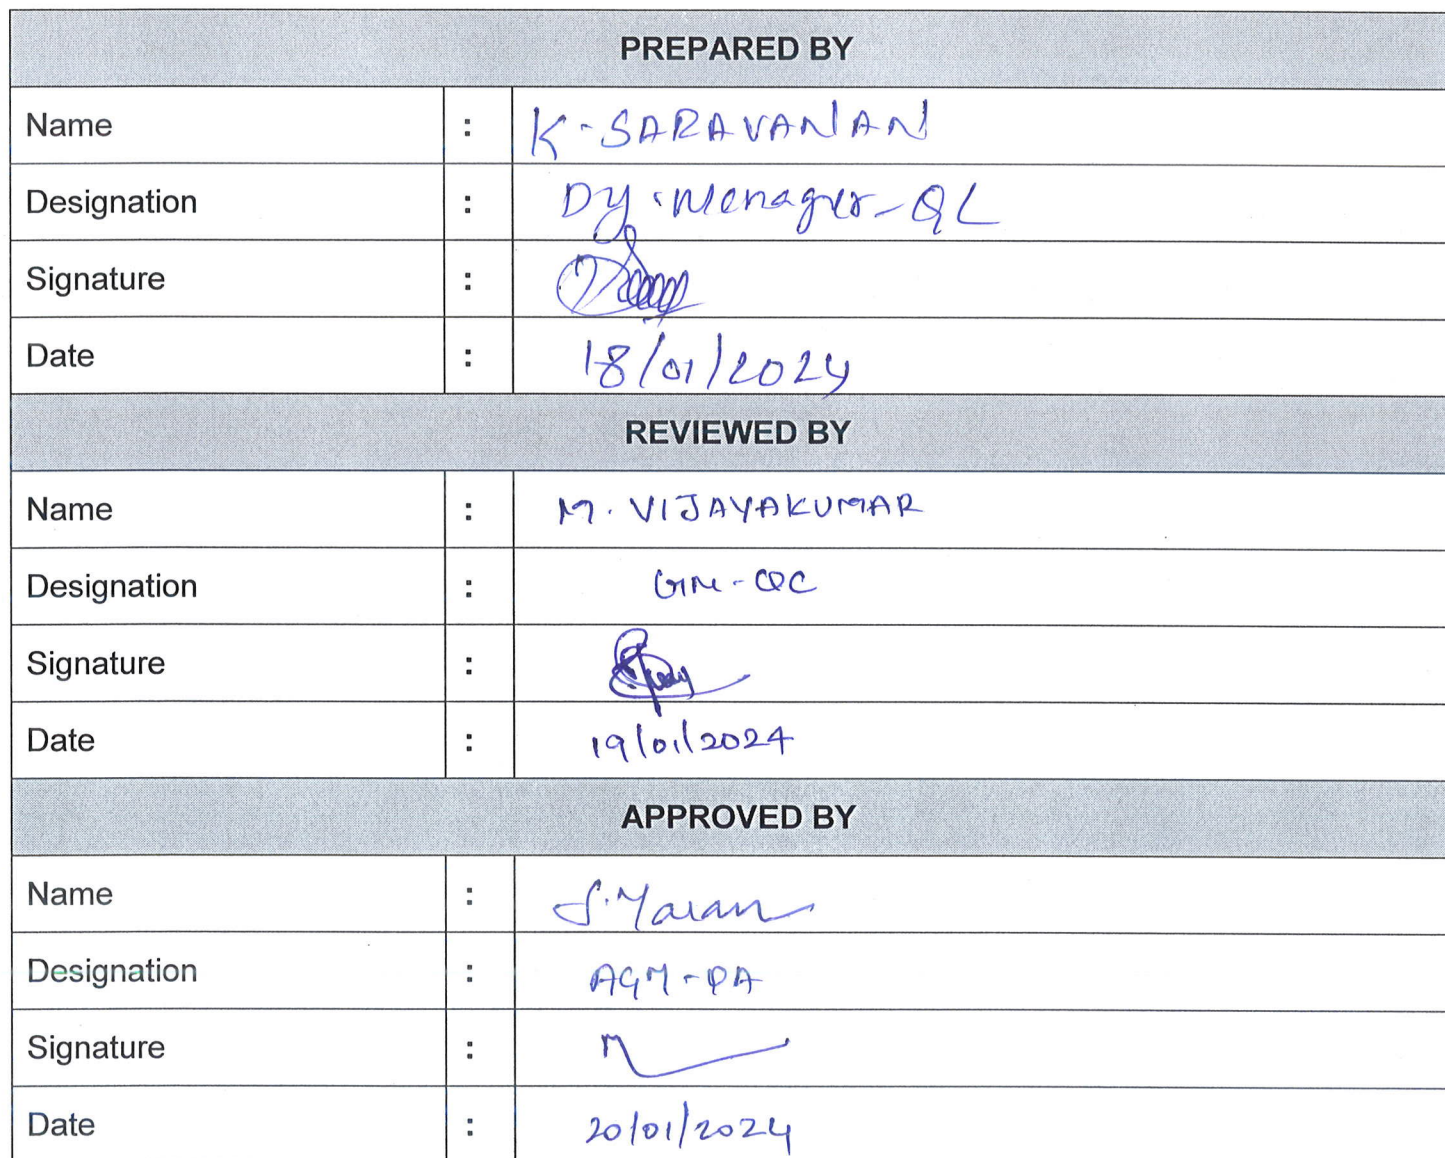 PREPARED BY
Name : K. SARAVANAN
Designation : Dy. Manager-QC
Signature :
Date : 18/01/2024
REVIEWED BY
Name : M. VIJAYAKUMAR
Designation : GM-QC
Signature :
Date : 19/01/2024
APPROVED BY
Name : S. Maran
Designation : AGM-QA
Signature :
Date : 20/01/2024